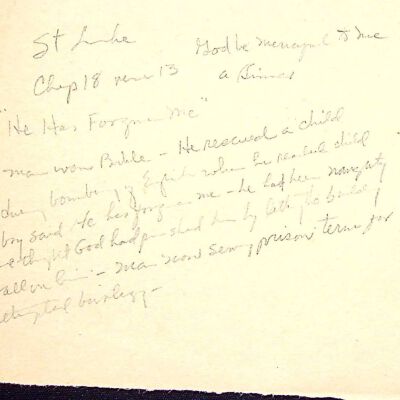 St Luke God be merciful to me
Chap 18 verse 13 a Sinner
"He Has Forgiven Me"
man won Bible - He rescued a child
during bombing of when he reached child
boy said He has forgiven me - he had been naughty
thought God had punished him by letting the building
fall on him - man now serving prison term for
attempted burglary -